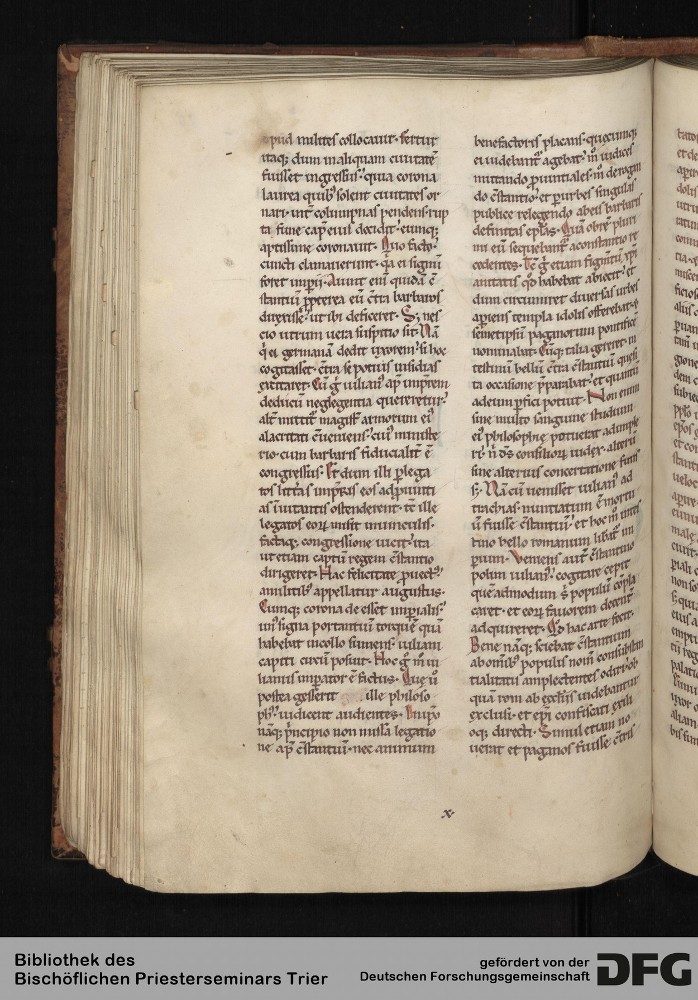 apud milites collocauit· fertur
itaq; dum in aliquam ciuitatē
fuisset ingressus· quia corona
laurea quib; solent ciuitates or
nari· int̄ columpnas pendens· rup
ta fune cap̄ eius decidit· eumq;
aptissime coronauit· Quo facto·
cuncti clamauerunt· q̄a ei signū
foret imp̄ii· Aiunt eni quidā cō
stantiū ꝓpterea eū cōtra barbaros
direxisse· ut ibi deficeret· S; nes
cio utrum uera suspitio sit· Nā
q̇ ei germanā dedit uxorem· si hoc
cogitasset· cōtra se potius insidias
excitaret· Cū g̊ iulian; ap̄ imp̄rem
deducū neglegentia quereretur·
alt̄ mittit̄ magist̄ armorum ei;
alacritati cōueniens· cui; ministe
rio· cum barbaris fiducialit̄ ē
congressus· Et dum illi ꝑ lega
tos litt̄as imp̄ris eos ad ꝓuinti
as inuitantis ostenderent· t̄c ille
legatos eorꝝ misit in uinculis·
factaq; congressione uicit· ita
ut etiam captū regem cōstantio
dirigeret· Hac felicitate ꝓuect;
a militib; appellatur augustus·
Cumq; corona de esset imp̄ialis·
un; signa portantiū torquē quā
habebat in collo sumens· iuliani
capiti circū posuit· Hoc g̊ m̊ iu
lianus imp̄ator ē factus· Que ū
postea gesserit ille philoso
ph;· iudicent audientes· Jmp̄o
nāq; pͥncipio non missa legatio
ne ap̄ cōstantiū· nec animum
benefactoris placans· quecumq;
ei uidebant̄ agebat· m̊ iudices
mutando ꝓuintiales· m̊ derogan
do cōstantio· et ꝑ urbes singulas
publice relegendo ab eis barbaris
definitas ep̄las· Qua ob rē pluri
mi eū sequebant̄ a constantio re
cedentes· t̄c g̊ etiam figmtū xp̄i
anitatis qd̄ habebat abiecit· et
dum circumiret diuersas urbes
aꝑiens templa idolis offerebat· &
semetipsū paganorum pontificē
nominabat· Cūq; talia gereret· in
testinū bellū cōtra cōstantiū quesi
ta occasione p̄parabat· et quantū
ad eum ꝑfici potuit· Non enim
sine multo sanguine studium
ei; philosophie potuerat adimple
ri· n̄ d̄s consilioꝝ iudex· alterū
sine alterius concertatione finis
s;· Nā cū uenisset iulian; ad
trachias· nuntiatum ē mortu
ū fuisse cōstantiū· et hoc m̊ intes
tino bello romanum libat̄ im
ꝑium· Veniens aut̄ cōstantino
polim iulian; cogitare cepit
quēadmodum s̄ populū cōpla
caret· et eorꝝ fauorem decent̄
adquireret· Qd̄ hac arte fecit·
Bene nāq; sciebat cōstantium
ab om̄ib; populis nom̄ consubstan
tialitatis amplectentes odiri· ob
quā rem ab ecclīis uidebantur
exclusi· et ep̄i confiscati exili
oq; directi· Simul etiam no
uerat et paganos fuisse cōtris
x·
Bibliothek des
Bischöflichen Priesterseminars Trier
gefördert von der
Deutschen Forschungsgemeinschaft
DFG